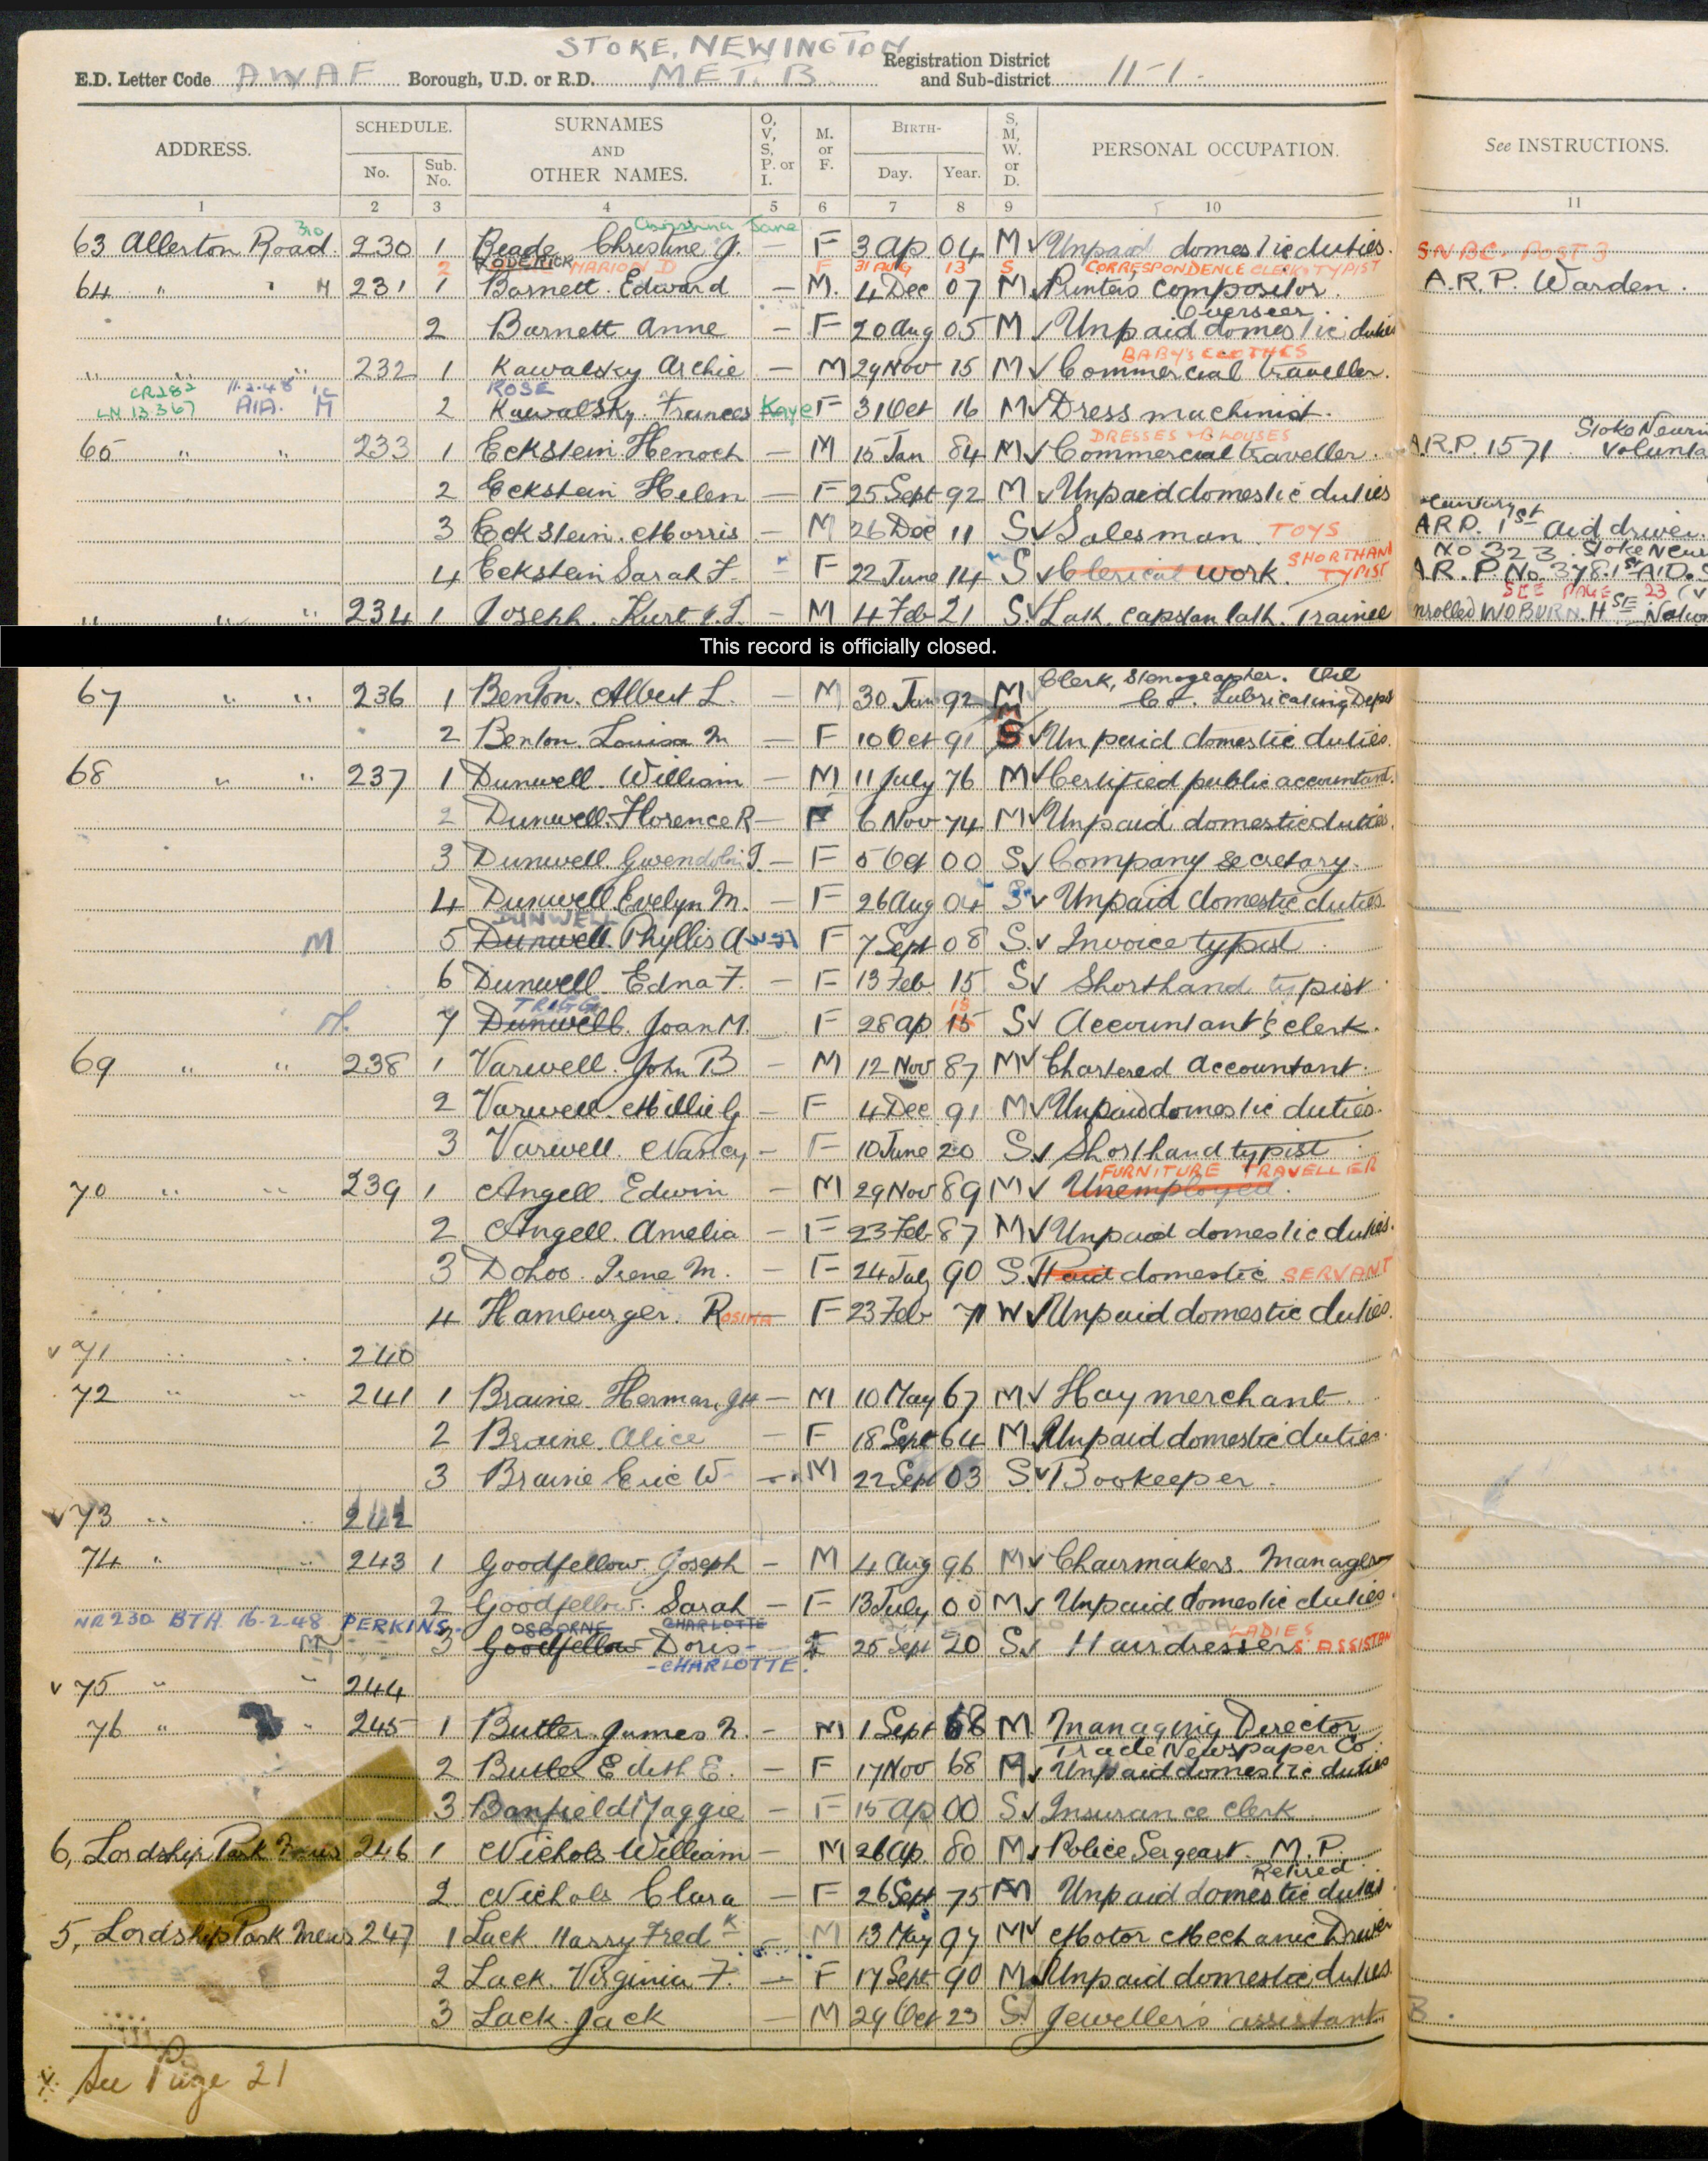 STOKE NEWINGTON
E.D. Letter Code AWAF Borough, U.D. or R.D. MET. B Registration District and Sub-district 11-1.
ADDRESS. SCHEDULE. No. Sub. No. SURNAMES AND OTHER NAMES. O, V, S, P. or I. M. or F. BIRTH- Day. Year. S, M, W. or D. PERSONAL OCCUPATION. See INSTRUCTIONS.
1 2 3 4 5 6 7 8 9 10 11
Jane
63 Allerton Road. 230 1 Christine J. - F 3 Ap 04 M Unpaid domestic duties. POST 3
2 RODERICK MARION D F 31 AUG 13 S CORRESPONDENCE CLERK & TYPIST
64 " " M 231 1 Barnett. Edward - M. 4 Dec 07 M Printers Compositor. A.R.P. Warden.
Overseer
2 Barnett Anne - F 20 Aug 05 M Unpaid domestic duties
BABY'S CLOTHES
" " 232 1 Kawalsky Archie - M 29 Nov 15 M Commercial traveller.
CR282 11.2.48 ROSE
LN 13367 AIA. M 2 Kawalsky. Frances Kaye F 31 Oct 16 M Dress machinist.
DRESSES & BLOUSES Stoke Newin
65 " " 233 1 Eckstein Henoch - M 15 Jan 84 M Commercial traveller. A.R.P. 1571 Volunta
2 Eckstein Helen - F 25 Sept 92 M Unpaid domestic duties
3 Eckstein. Morris - M 26 Dec 11 S Salesman TOYS ARP. 1st aid driver.
No 323. Stoke New
4 Eckstein Sarah F. - F 22 June 14 S Clerical work. SHORTHAND TYPIST A.R.P. No. 378. 1st AID. S
SEE PAGE 23
" " 234 1 Joseph. Kurt J. - M 4 Feb 21 S. Lath. capstan lath. Trainee nrolled WOBURN. HSE
This record is officially closed.
Clerk, Stenographer. Oil
67 " " 236 1 Benton. Albert L. - M 30 Jan 92 M Co. Lubricating Dept
M
2 Benton. Louisa M - F 10 Oct 91 S Unpaid domestic duties.
68 " " 237 1 Dunwell. William - M 11 July 76 M Certified public accountant.
2 Dunwell. Florence R - F 6 Nov 74 M Unpaid domestic duties.
3 Dunwell. Gwendolin J. - F 5 Oct 00 S Company secretary.
4 Dunwell. Evelyn M. - F 26 Aug 04 S Unpaid domestic duties.
DUNWELL
M 5 Dunwell. Phyllis A F 7 Sept 08 S. Invoice typist.
6 Dunwell. Edna F. - F 13 Feb 15 S Shorthand typist.
TRIGG 18
M. 7 Dunwell. Joan M. F 28 Ap. 15 S Accountant's clerk.
69 " " 238 1 Varwell. John B - M 12 Nov 87 M Chartered accountant.
2 Varwell. Millie G - F 4 Dec 91 M Unpaid domestic duties.
3 Varwell. Nancy - F 10 June 20 S Shorthand typist
FURNITURE TRAVELLER
70 " " 239 1 Angell. Edwin - M 29 Nov 89 M Unemployed.
2 Angell. Amelia - F 23 Feb 87 M Unpaid domestic duties.
3 Dohoo. Irene M. - F 24 July 90 S. Paid domestic SERVANT
4 Hamburger. ROSINA F 23 Feb 71 W Unpaid domestic duties.
v 71 " " 240
72 " " 241 1 Braine. Herman, J H - M 10 May 67 M Hay merchant.
2 Braine. Alice - F 18 Sept 64 M Unpaid domestic duties.
3 Braine Eric W - M 22 Sept 03 S Bookeeper.
v 73 " " 242
74 " " 243 1 Goodfellow. Joseph - M 4 Aug 96 M Chairmakers. Manager
2 Goodfellow. Sarah - F 13 July 00 M Unpaid domestic duties.
NR 230 BTH. 16-2-48 PERKINS. OSBORNE CHARLOTTE LADIES
M 3 Goodfellow Doris - F 25 Sept 20 S Hairdressers ASSISTAN
- CHARLOTTE.
v 75 " " 244
76 " " 245 1 Butler. James N. - M 1 Sept 68 M Managing Director
Trade Newspaper Co.
2 Butler Edith E. - F 17 Nov 68 M Unpaid domestic duties
3 Banfield Maggie - F 15 Ap 00 S Insurance clerk
6, Lordship Park Mews 246 1 Nichols William - M 26 Ap. 80 M Police Sergeant. M.P.
Retired.
2 Nichols Clara - F 26 Sept 75 M Unpaid domestic duties
5, Lordship Park Mews 247 1 Lack. Harry Fredk - M 13 May 97 M Motor Mechanic Driver
2 Lack. Virginia F. - F 17 Sept 90 M Unpaid domestic duties
3 Lack. Jack - M 29 Oct 23 S Jeweller's assistant B.
See Page 21